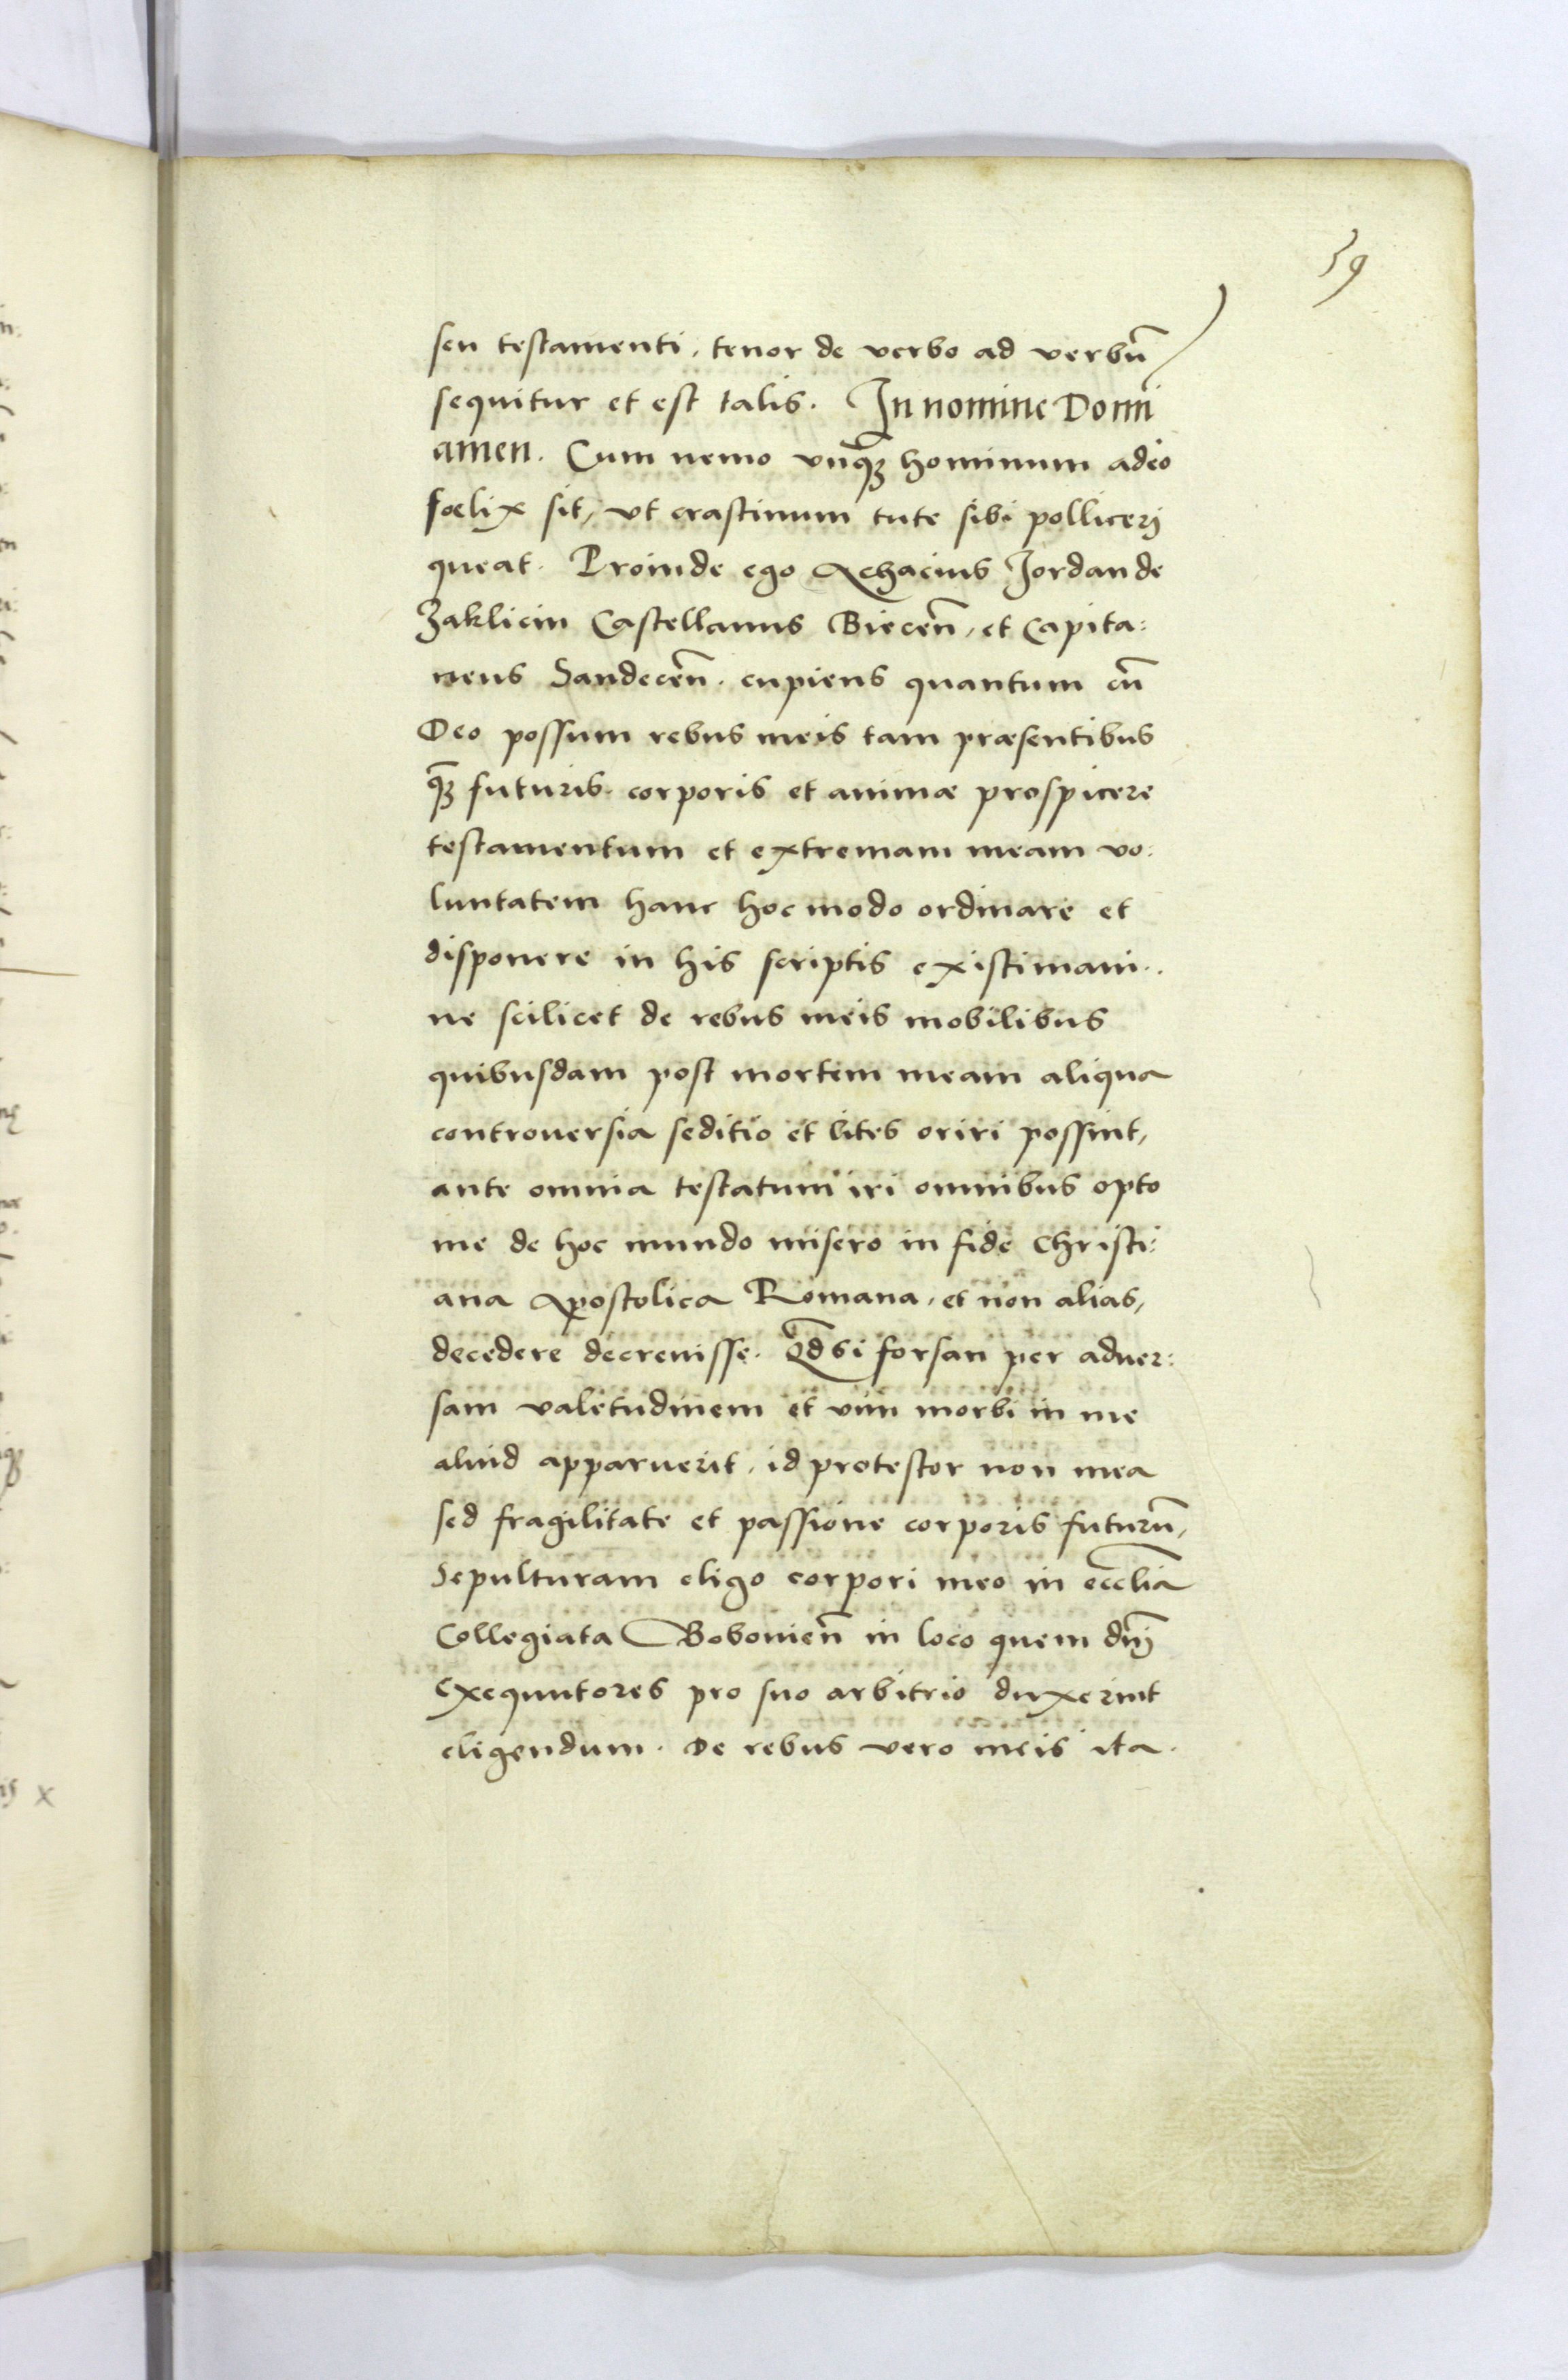 59
seu testamenti, tenor de verbo ad verbũ
sequitur et est talis. In nomine Domi
amen. Cum nemo vnqꝫ hominum adeo
fœlix sit, vt crastinum tute sibi pollicerj
queat. Proinde ego Achacius Jordan de
Zaklicin Castellanus Biecen̄, et Capita:
neus Sandecen̄. cupiens quantum cũ
Deo possum rebus meis tam præsentibus
qꝫ futuris corporis et animæ prospicere
testamentum et extremam meam vo:
luntatem hanc hoc modo ordinare et
disponere in his scriptis existimaui.
ne scilicet de rebus meis mobilibus
quibusdam post mortem meam aliqua
controuersia seditio et lites oriri possint,
ante omnia testatum iri omnibus opto
me de hoc mundo misero in fide Christi:
ana Apostolica Romana, et non alias,
decedere decreuisse. Qd̄ si forsan per aduer:
sam valetudinem et vim morbi in me
aliud apparuerit, id protestor non mea
sed fragilitate et passione corporis futurũ,
Sepulturam eligo corpori meo in ecclīa
Collegiata Bobouien̄ in loco quem dnj̄
Exequutores pro suo arbitrio duxerint
eligendum. De rebus vero meis ita.
x